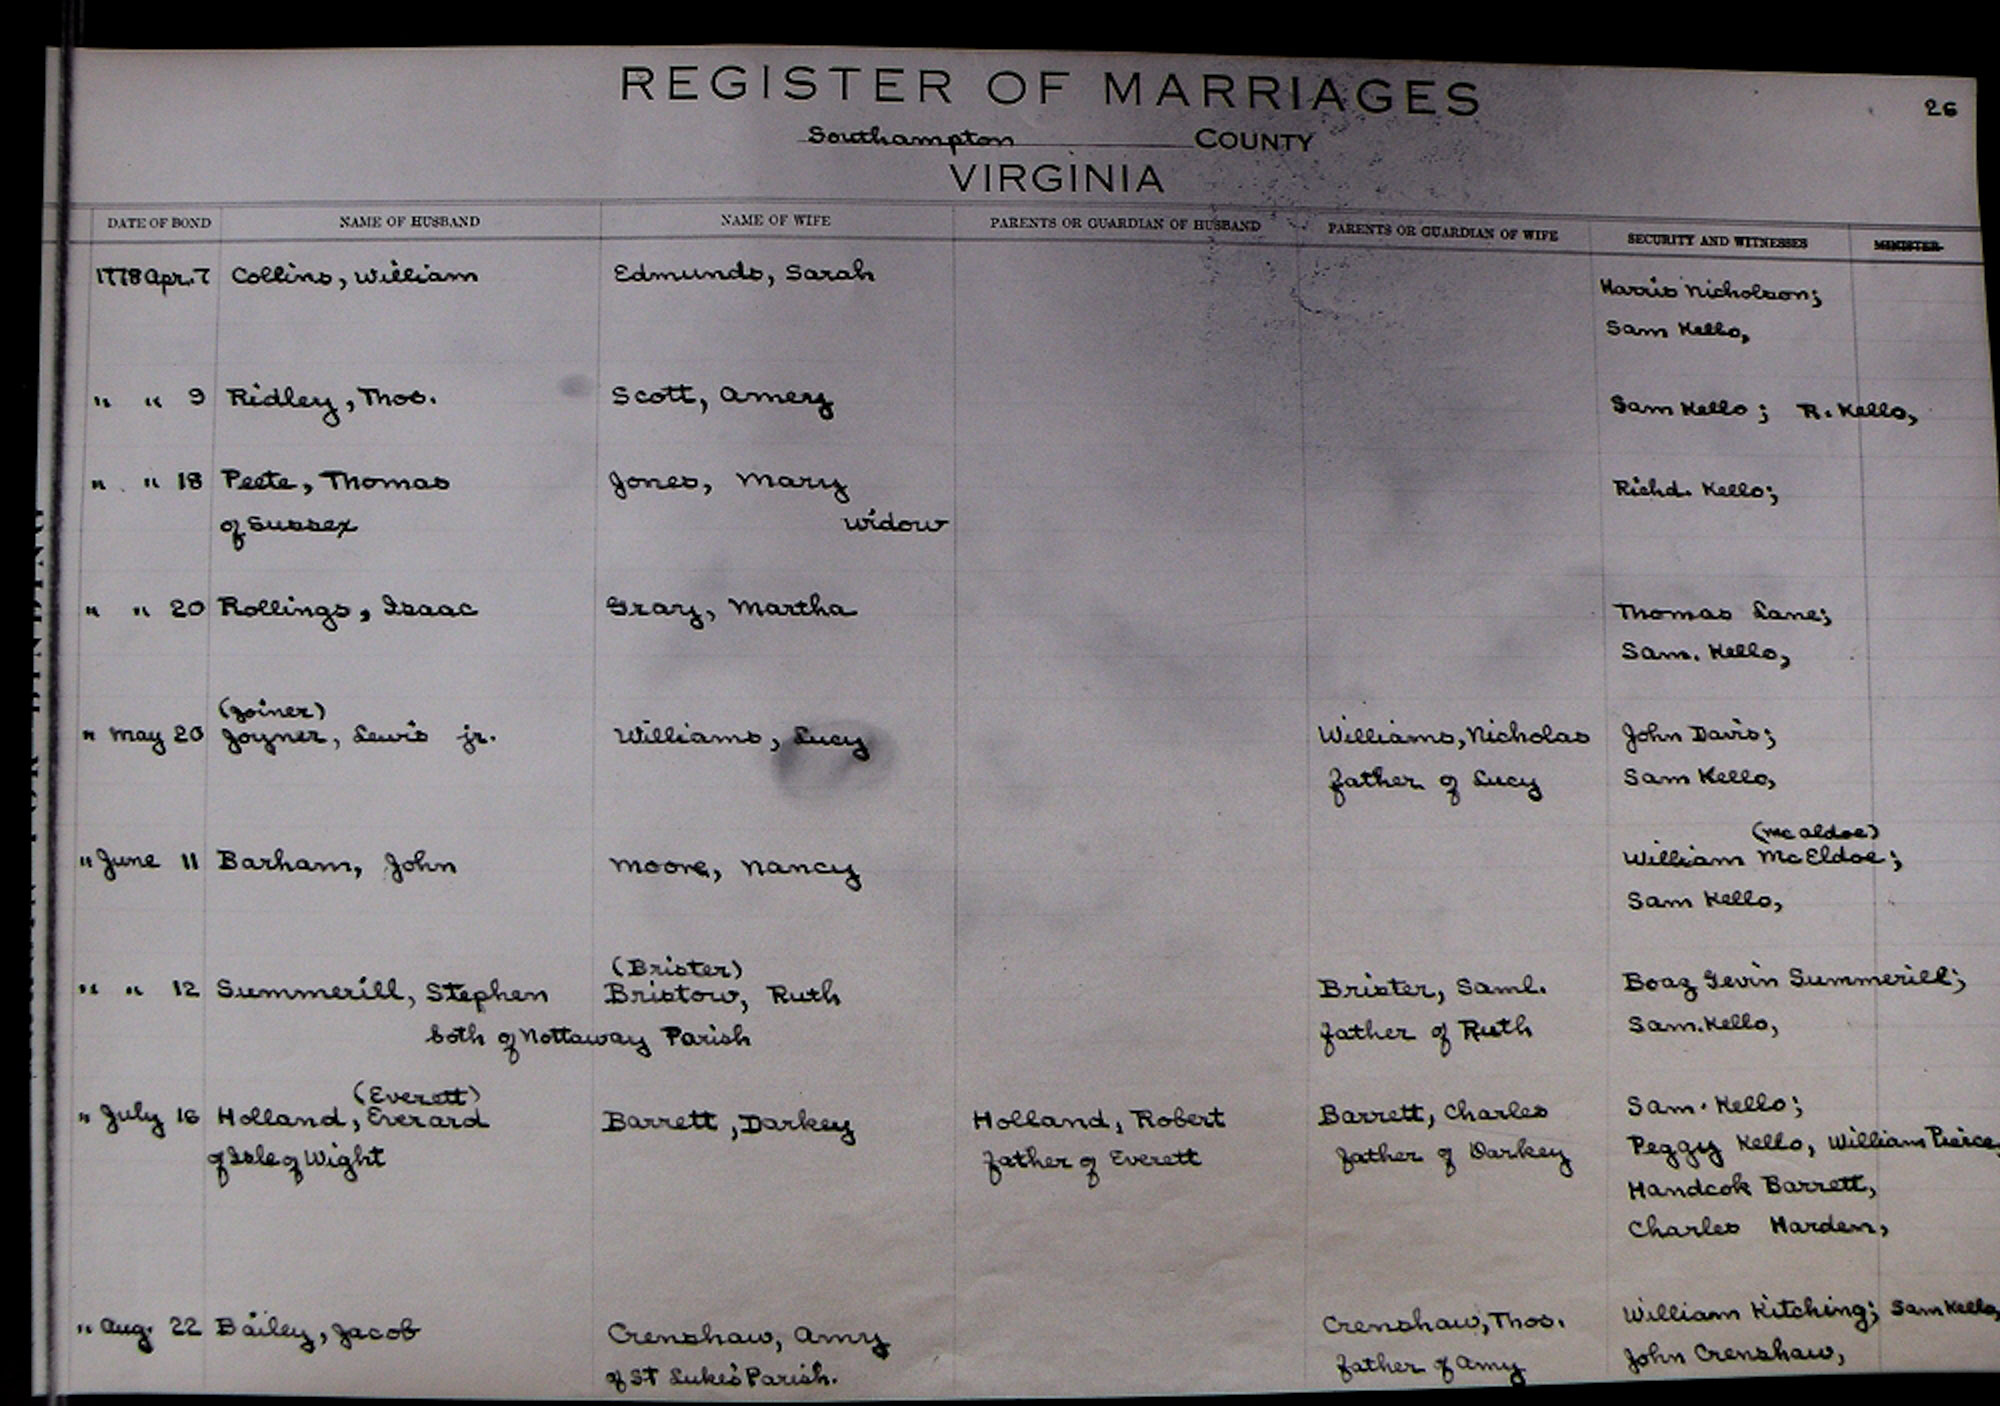 REGISTER OF MARRIAGES
26
Southampton COUNTY
VIRGINIA
DATE OF BOND NAME OF HUSBAND NAME OF WIFE PARENTS OR GUARDIAN OF HUSBAND PARENTS OR GUARDIAN OF WIFE SECURITY AND WITNESSES MINISTER
1778 Apr. 7 Collins, William Edmunds, Sarah Harris Nicholson;
Sam Kello,
" " 9 Ridley, Thos. Scott, Amery Sam Kello; R. Kello,
" " 18 Peete, Thomas Jones, Mary Richd. Kello;
of Sussex widow
" " 20 Rollings, Isaac Gray, Martha Thomas Lane;
Sam. Kello,
(Joiner)
" May 20 Joyner, Lewis jr. Williams, Lucy Williams, Nicholas John Davis;
father of Lucy Sam Kello,
(McAldoe)
" June 11 Barham, John Moore, Nancy William McEldoe;
Sam Kello,
(Brister)
" " 12 Summerill, Stephen Bristow, Ruth Brister, Saml. Boaz Gevin Summerill;
both of Nottaway Parish father of Ruth Sam. Kello,
(Everett)
" July 16 Holland, Everard Barrett, Darkey Holland, Robert Barrett, Charles Sam. Kello;
of Isle of Wight father of Everett father of Darkey Peggy Kello, William Pierce,
Handcok Barrett,
Charles Harden,
" Aug. 22 Bailey, Jacob Crenshaw, Amy Crenshaw, Thos. William Kitching; Sam Kello,
of St Luke's Parish. father of Amy John Crenshaw,